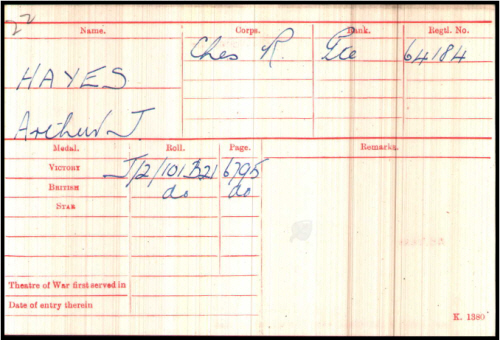 22
Name. Corps. Rank. Regtl. No.
HAYES Ches R. Pte 64184
Arthur J.
Medal. Roll. Page. Remarks.
VICTORY J/2/101B21 6795
BRITISH do do
STAR
Theatre of War first served in
Date of entry therein
K. 1380